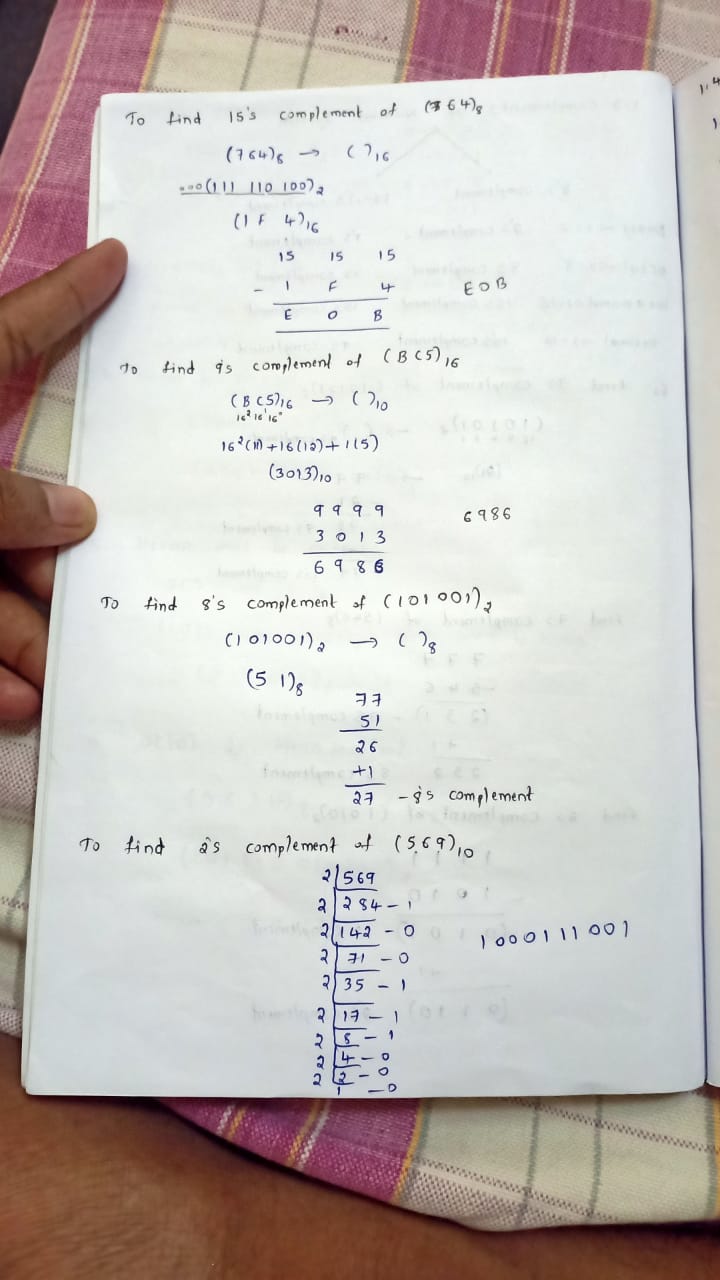 To find 15's complement of (764)8
(764)8 → ( )16
000(111 110 100)2
(1 F 4)16
15 15 15
- 1 F 4
E 0 B
E0B
To find 9's complement of (BC5)16
(BC5)16 → ( )10
16² 16¹ 16⁰
16²(11)+16(12)+1(5)
(3013)10
9 9 9 9
3 0 1 3
6 9 8 6
6986
To find 8's complement of (101001)2
(101001)2 → ( )8
(5 1)8
77
51
26
+1
27 - 8's complement
To find 2's complement of (569)10
2 569
2 284 - 1
2 142 - 0
2 71 - 0
2 35 - 1
2 17 - 1
2 8 - 1
2 4 - 0
2 2 - 0
1 - 0
1000111001